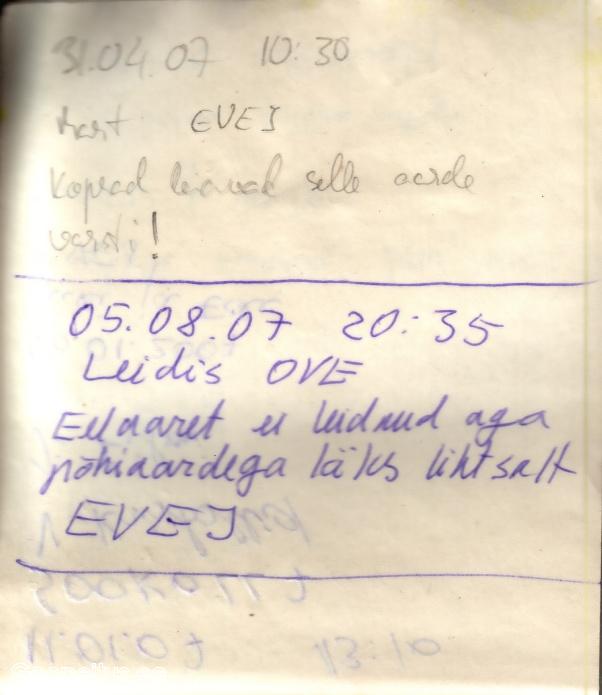 31.04.07 10:30
Mart EVEJ
Koprad leiavad selle aarde
varsti!
05.08.07 20:35
Leidis OVE
Eelaaret ei leidnud aga
põhiaardega läks lihtsalt
EVEJ
11.01.07 13:10